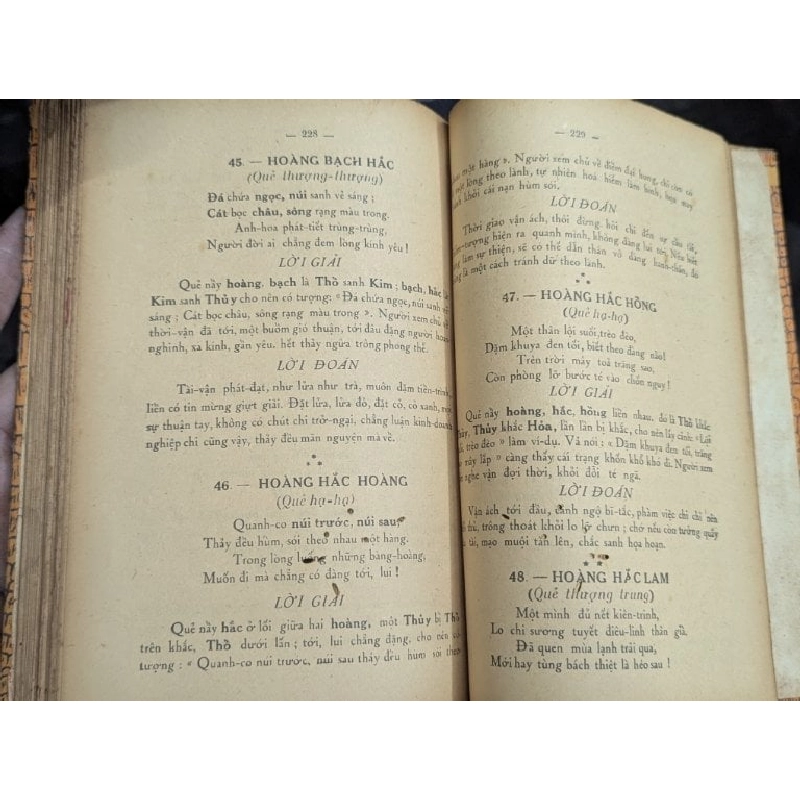 — 228 —
45. — HOÀNG BẠCH HẮC
(Quẻ thượng-thượng)
Đá chứa ngọc, núi sanh vẻ sáng ;
Cát bọc châu, sông rạng màu trong.
Anh-hoa phát-tiết trùng-trùng,
Người đời ai chẳng đem lòng kính yêu !
LỜI GIẢI
Quẻ nầy hoàng, bạch là Thổ sanh Kim ; bạch, hắc là
Kim sanh Thủy cho nên có tượng: « Đá chứa ngọc, núi sanh vẻ
sáng ; Cát bọc châu, sông rạng màu trong ». Người xem chủ về
thời-vận đã tới, một buồm gió thuận, tới đâu đặng người hoan
nghinh, xa kính, gần yêu, hết thảy ngửa trông phong thể.
LỜI ĐOÁN
Tài-vận phát-đạt, như lửa như trà, muôn dặm tiền-trình,
liền có tin mừng giựt giải. Đặt lửa, lửa đỏ, đặt cỏ, cỏ xanh, mọi
sự thuận tay, không có chút chi trở-ngại, chẳng luận kinh-doanh
nghiệp chi cũng vậy, thảy đều mãn nguyện mà về.
46. — HOÀNG HẮC HOÀNG
(Quẻ hạ-hạ)
Quanh-co núi trước, núi sau,
Thảy đều hùm, sói theo nhau một hàng.
Trong lòng luống những bàng-hoàng,
Muốn đi mà chẳng có đàng tới, lui !
LỜI GIẢI
Quẻ nầy hắc ở lối giữa hai hoàng, một Thủy bị Thổ
trên khắc, Thổ dưới lấn ; tới, lui chẳng đặng, cho nên có
tượng : « Quanh-co núi trước, núi sau thảy đều hùm sói theo
— 229 —
nhau một hàng ». Người xem chủ về điềm đại hung, chỉ còn có
một lòng theo lành, tự nhiên hoá hiểm làm bình,
khỏi cái nạn hùm sói.
LỜI ĐOÁN
Thời giao vận ách, thôi đừng hỏi chi đến sự cầu tài,
tượng hiện ra quanh mình, không đàng lui tới. Nếu biết
làm sự thiện, sẽ có thể dẫn thân vô đàng
là một cách tránh dữ theo lành.
47. — HOÀNG HẮC HỒNG
(Quẻ hạ-hạ)
Một thân lội suối, trèo đèo,
Dặm khuya đen tối, biết theo đàng nào!
Trên trời mây toả trăng sao,
Còn phòng lỡ bước té vào chốn nguy !
LỜI GIẢI
Quẻ nầy hoàng, hắc, hồng liền nhau, đó là Thổ khắc
Thủy, Thủy khắc Hỏa, lần lần bị khắc, cho nên lấy cảnh: « Lội
suối, trèo đèo » làm ví-dụ. Vả nói : « Dặm khuya đen tối, trăng
mây lấp » càng thấy cái trạng khốn khổ khó đi. Người xem
nghe vận đợi thời, khỏi đổi té ngã.
LỜI ĐOÁN
Vận ách tới đầu, cảnh ngộ bi-tắc, phàm việc chi chỉ nên
thủ, trông thoát khỏi lo lỡ chưn ; chớ nếu còn tưởng quấy
mạo muội tấn lên, chắc sanh họa hoạn.
48. — HOÀNG HẮC LAM
(Quẻ thượng trung)
Một mình đủ nết kiên-trinh,
Lo chi sương tuyết điêu-linh thân già.
Đã quen mùa lạnh trải qua,
Mới hay tùng bách thiệt là héo sau !